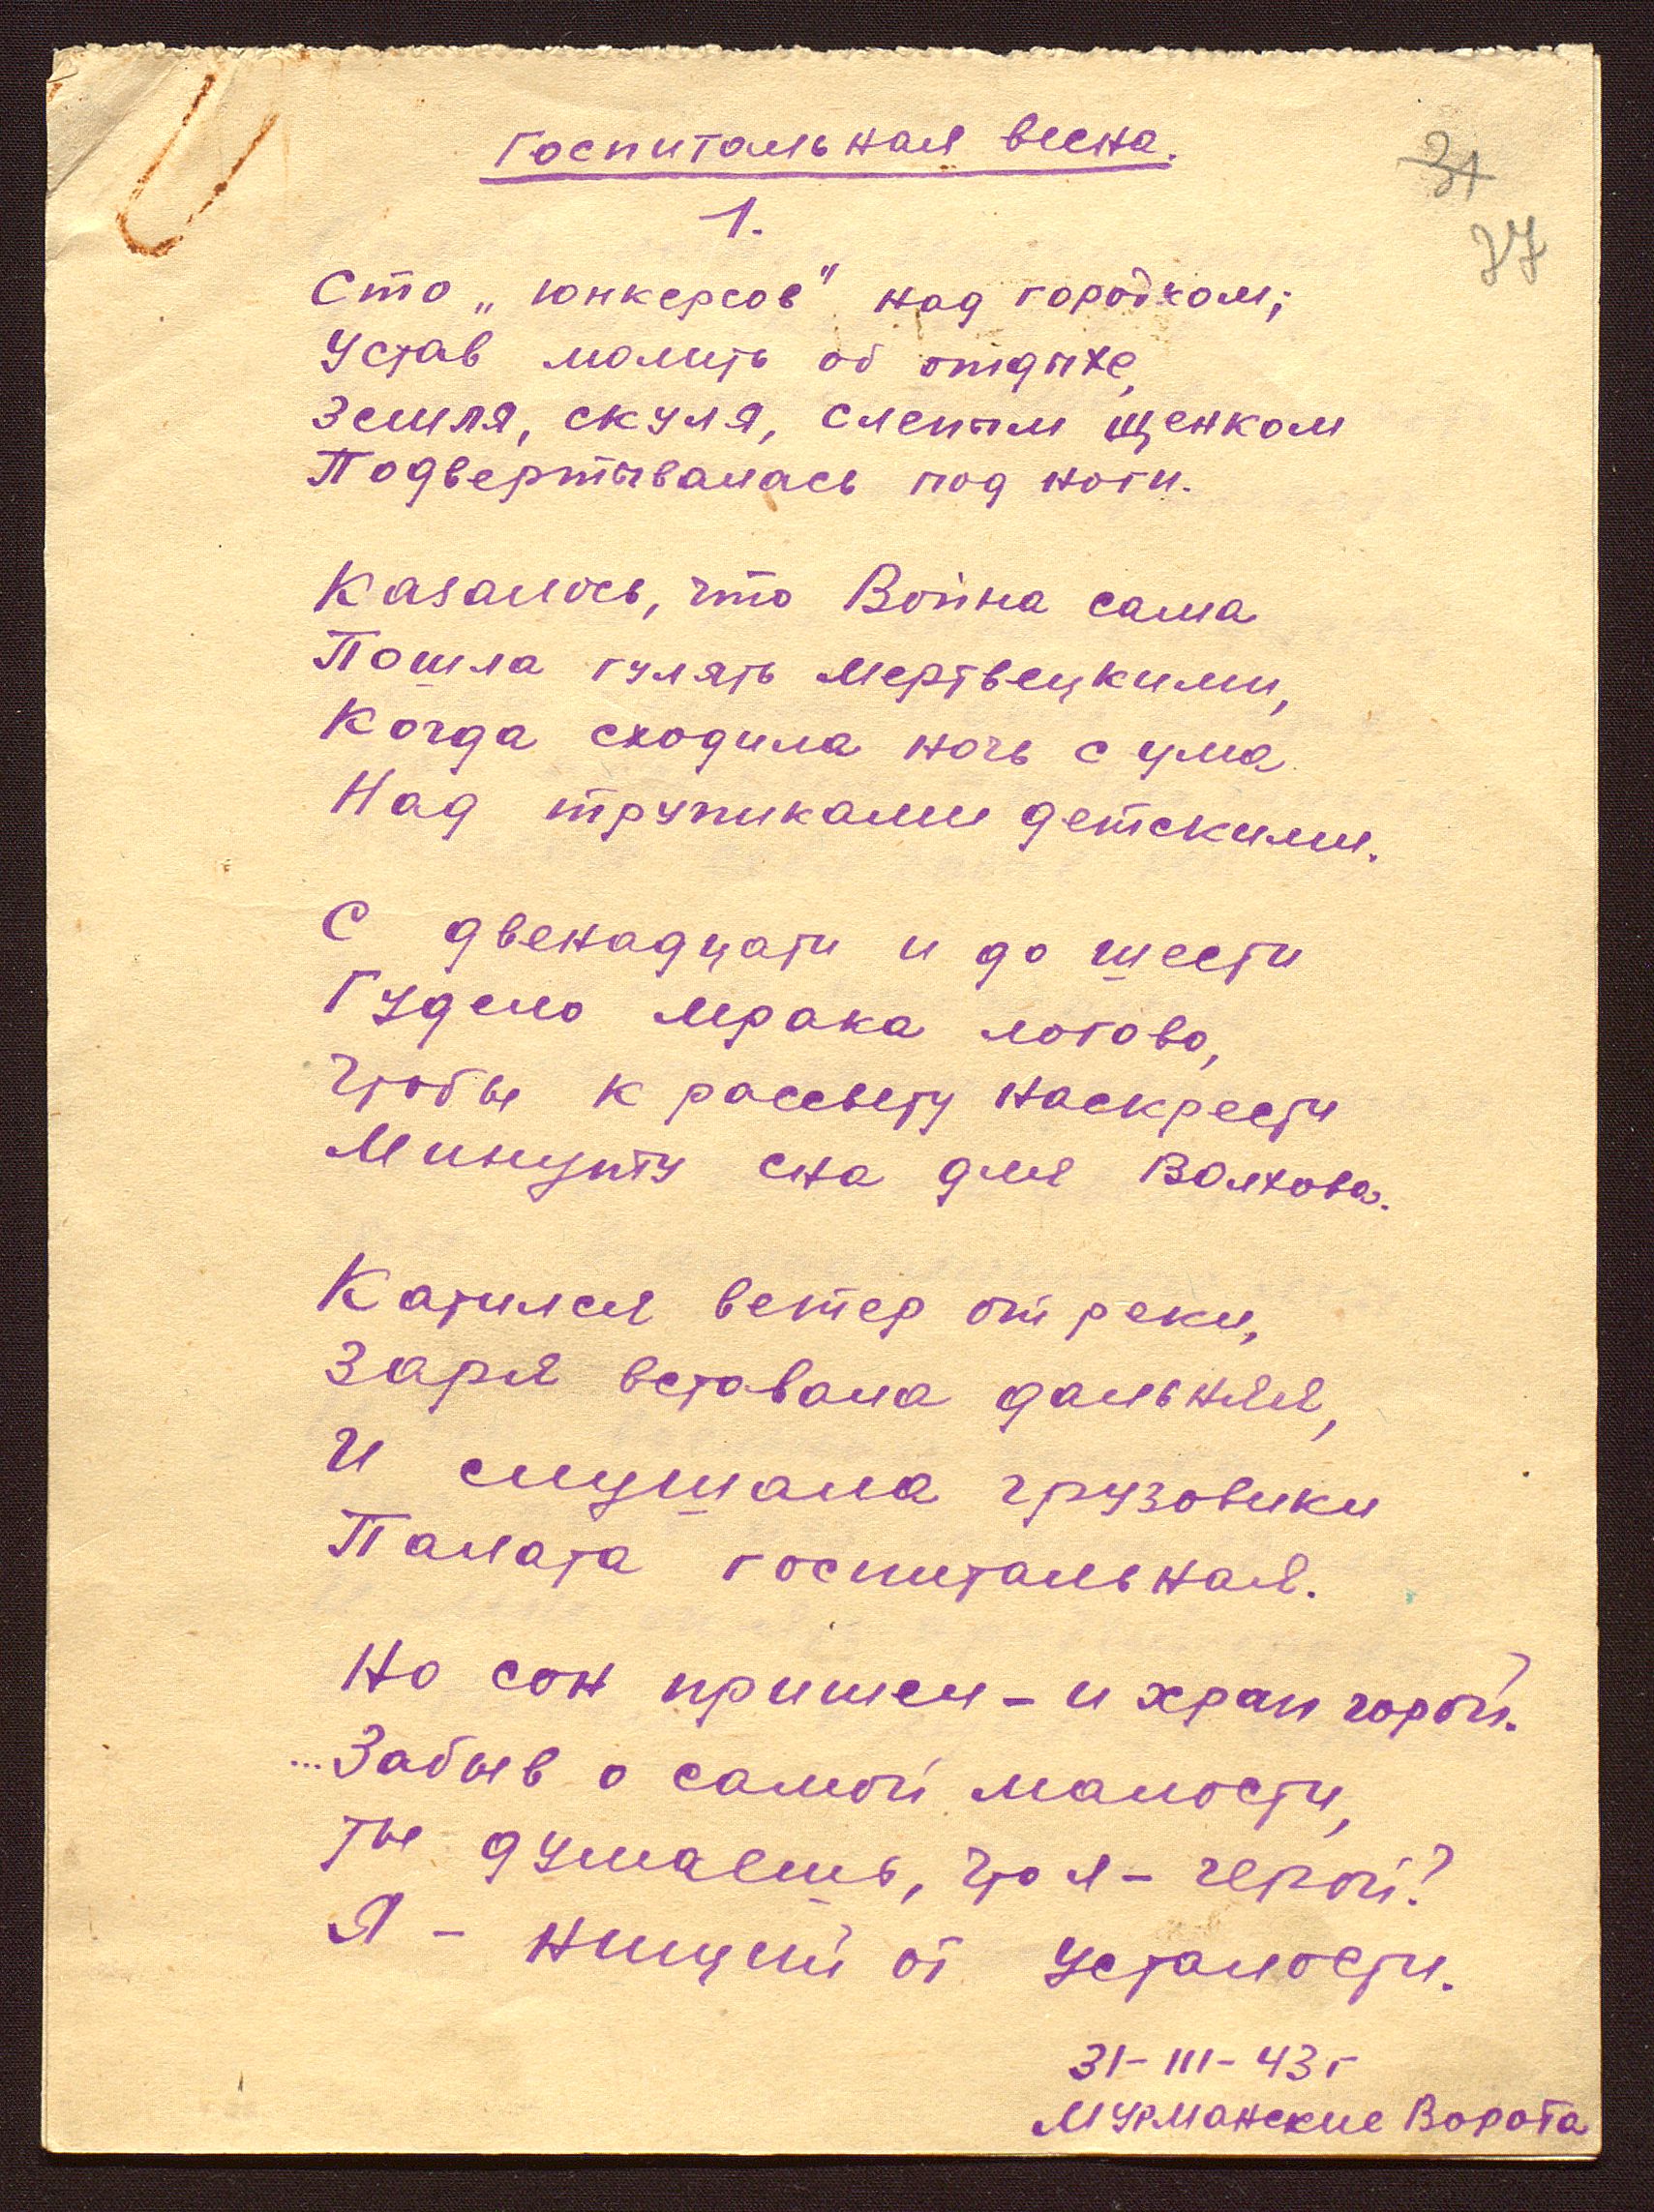 Госпитальная весна.
31
37
1.
Сто „юнкерсов" над городком;
Устав молить об отдыхе,
Земля, скуля, слепым щенком
Подвертывалась под ноги.
Казалось, что Война сама
Пошла гулять мертвецкими,
Когда сходила ночь с ума
Над трупиками детскими.
С двенадцати и до шести
Гудело мрака логово,
Чтобы к рассвету наскрести
Минуту сна для Волхова.
Катился ветер от реки,
Заря вставала дальняя,
И слушала грузовики
Палата госпитальная.
Но сон пришел – и храп горой.
...Забыв о самой малости,
Ты думаешь, что я – герой?
Я – нищий от усталости.
31-III-43 г
Мурманские Ворота